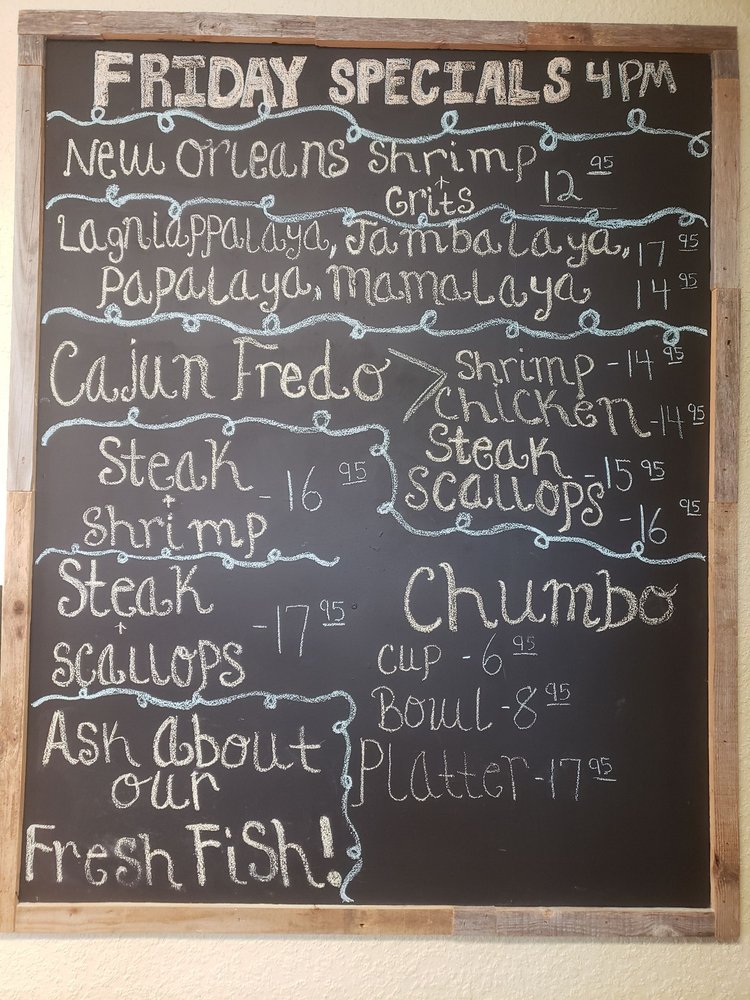 FRIDAY SPECIALS 4PM
New Orleans Shrimp
+
Grits 12 95
Lagniappalaya, Jambalaya, 17 95
Papalaya, Mamalaya 14 95
Cajun Fredo > Shrimp - 14 95
Chicken - 14 95
Steak - 15 95
Scallops - 16 95
Steak
+
Shrimp - 16 95
Steak
+
Scallops - 17 95
Chumbo
Cup - 6 95
Bowl - 8 95
Platter - 17 95
Ask About
our
Fresh Fish!